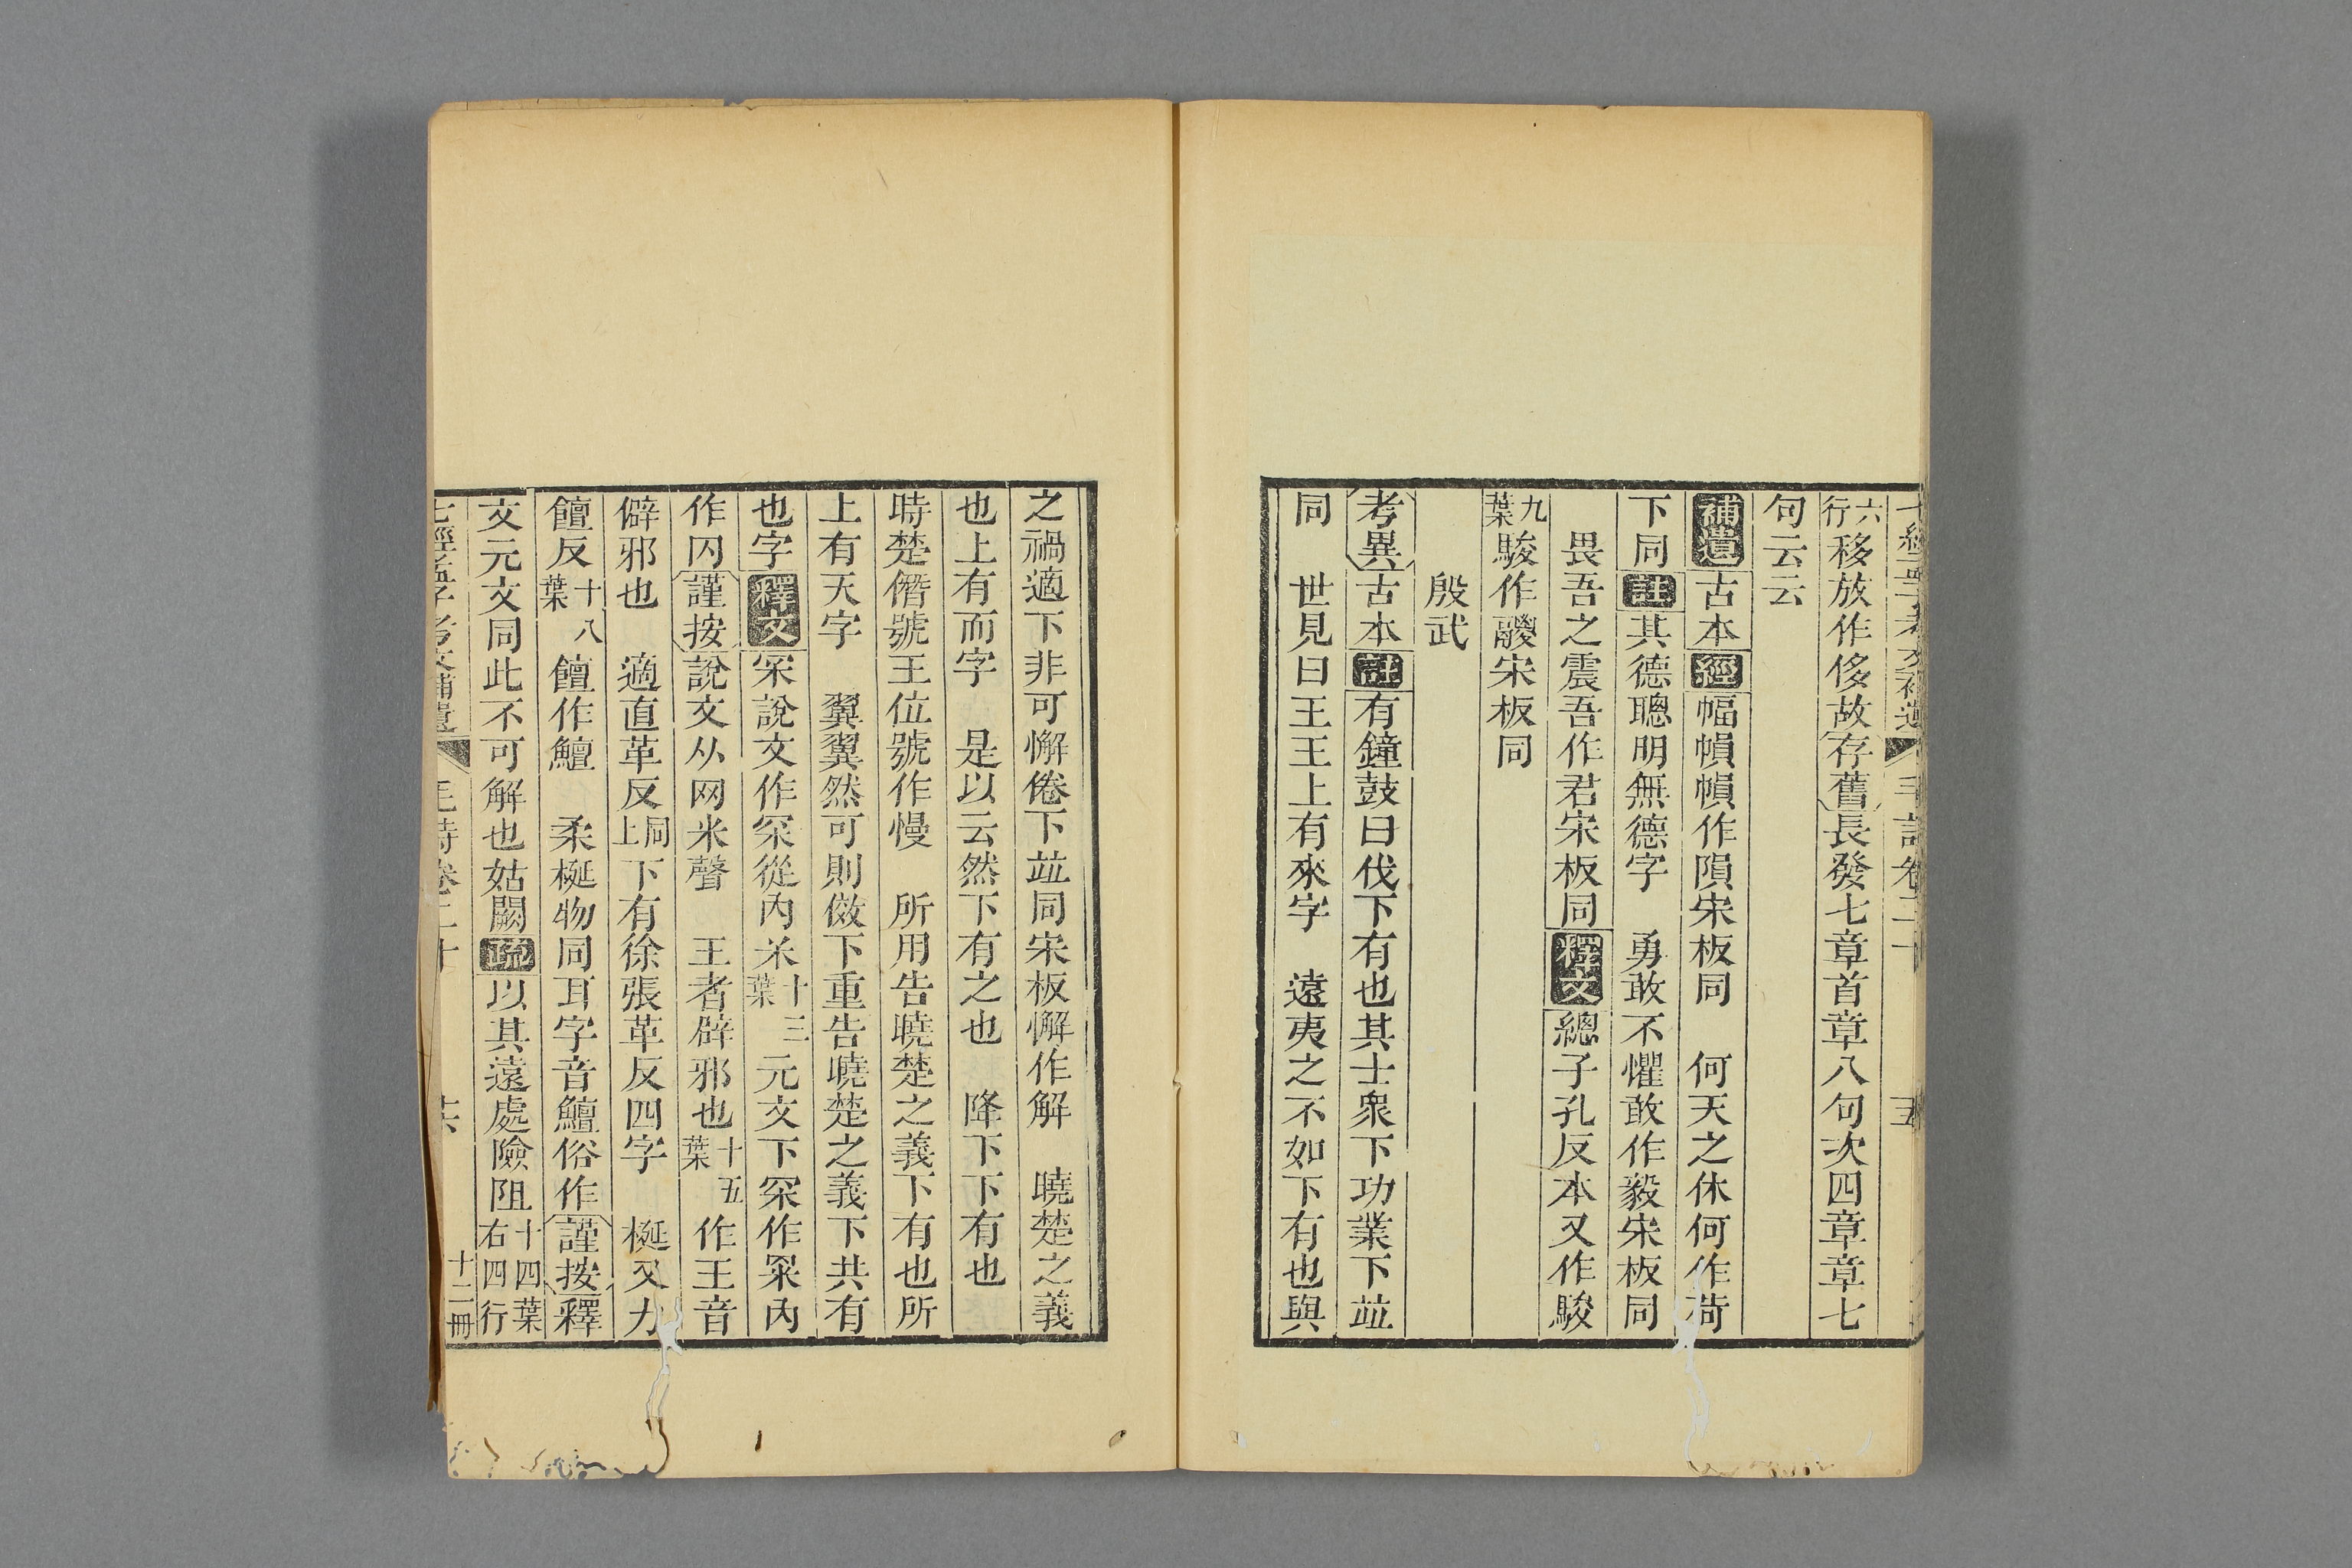 六行移放作侈故存舊長發七章首章八句次四章章七
句云云
補遺古本經幅幀幀作隕宋板同　何天之休何作荷
下同註其德聰明無德字　勇敢不懼敢作毅宋板同
畏吾之震吾作君宋板同釋文總子孔反本又作駿
九葉駿作鬷宋板同
殷武
考異古本註有鐘鼓曰伐下有也其士衆下功業下竝
同　世見曰王王上有來字　遠夷之不如下有也與
之禍適下非可懈倦下竝同宋板懈作解　曉楚之義
也上有而字　是以云然下有之也　降下下有也
時楚僭號王位號作慢　所用告曉楚之義下有也所
上有天字　翼翼然可則傚下重告曉楚之義下共有
也字釋文冞說文作罙從內米十三葉元文下罙作冞內
作㓁謹按說文从网米聲　王者辟邪也十五葉作王音
僻邪也　適直革反同上下有徐張革反四字　梴又力
饘反十八葉饘作鱣　柔梴物同耳字音鱣俗作謹按釋
文元文同此不可解也姑闕疏以其遠處險阻十四葉右四行
七經孟子考文補遺　毛詩卷二十　十六　十二冊